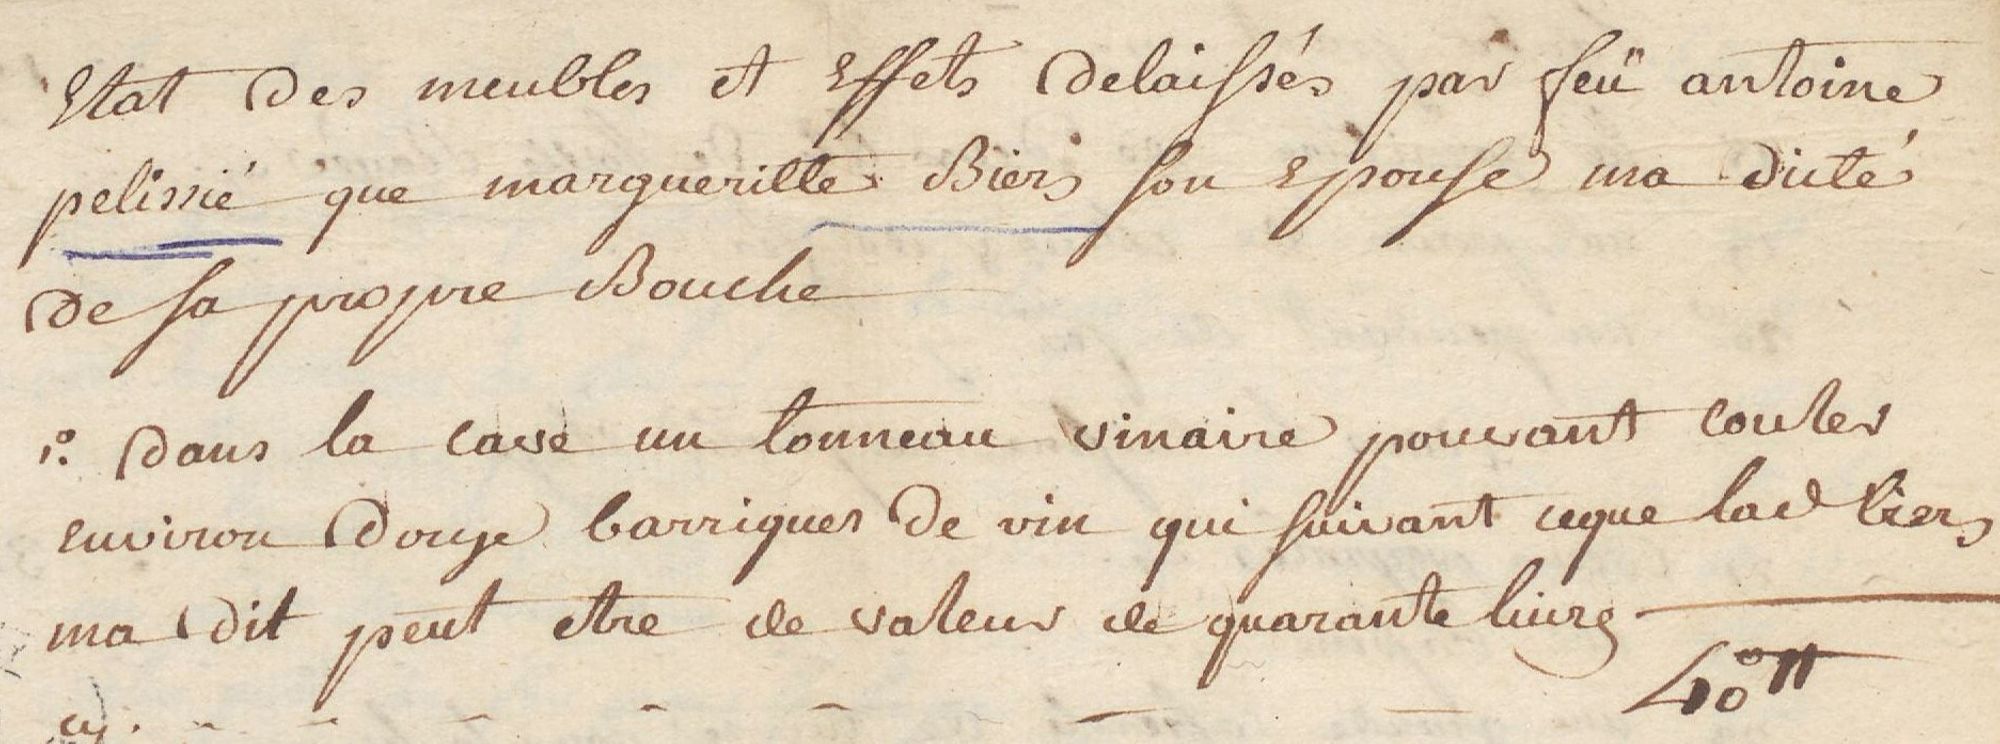 Etat des meubles et Effets delaissés par feü antoine
pelissié que margueritte Biers son Epouse ma dicté
de sa propre Bouche
1º. dans la cave un tonneau vinaire pouvant couler
environ douze barriques de vin qui suivant ceque lad Biers
ma dit peut etre de valeur de quarante livres
cy. 40 ₶